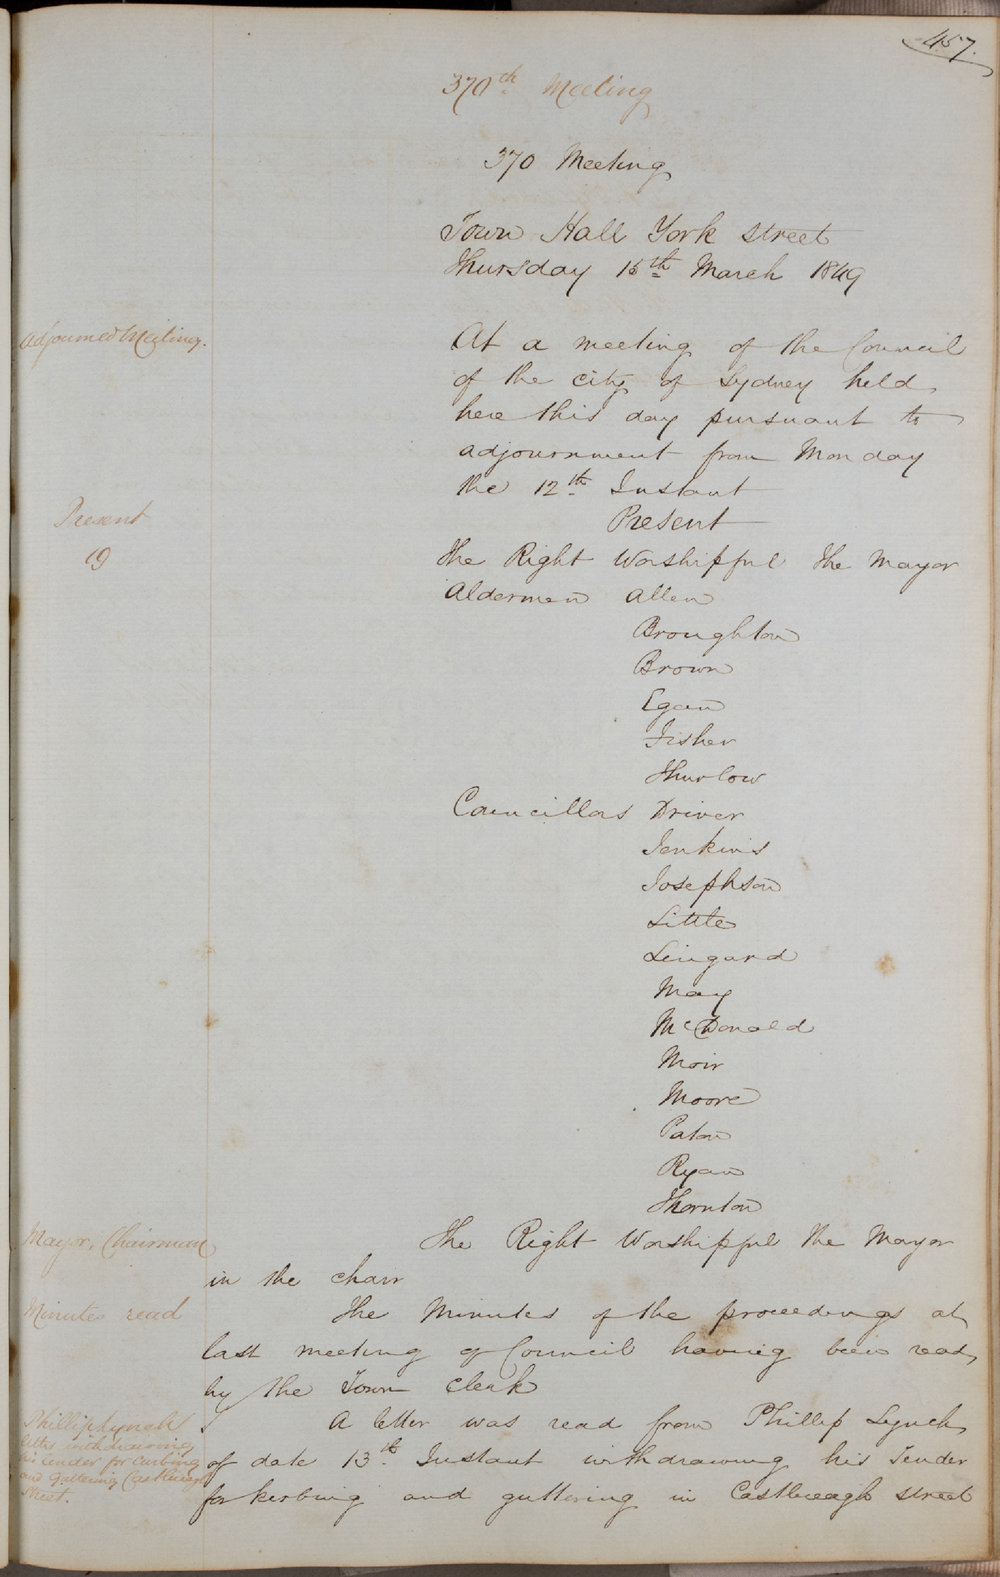 457.
370th Meeting
370 Meeting
Town Hall York Street
Thursday 15th March 1849
Adjourned Meeting.
At a meeting of the Council
of the city of Sydney held
here this day pursuant to
adjournment from Monday
the 12th Instant
Present
Present
19
The Right Worshipful The Mayor
Aldermen Allen
Broughton
Brown
Egan
Fisher
Thurlow
Councillors Driver
Jenkins
Josephson
Little
Lingard
May
McDonald
Moir
Moore
Paton
Ryan
Thornton
Mayor, Chairman
The Right Worshipful The Mayor
in the chair
Minutes read
The Minutes of the proceedings at
last meeting of Council having been read
by the Town Clerk
Phillip Lynch's
letter withdrawing
his tender for curbing
and guttering Castlereagh
Street.
A letter was read from Phillip Lynch
of date 13th Instant withdrawing his Tender
for kerbing and guttering in Castlereagh street